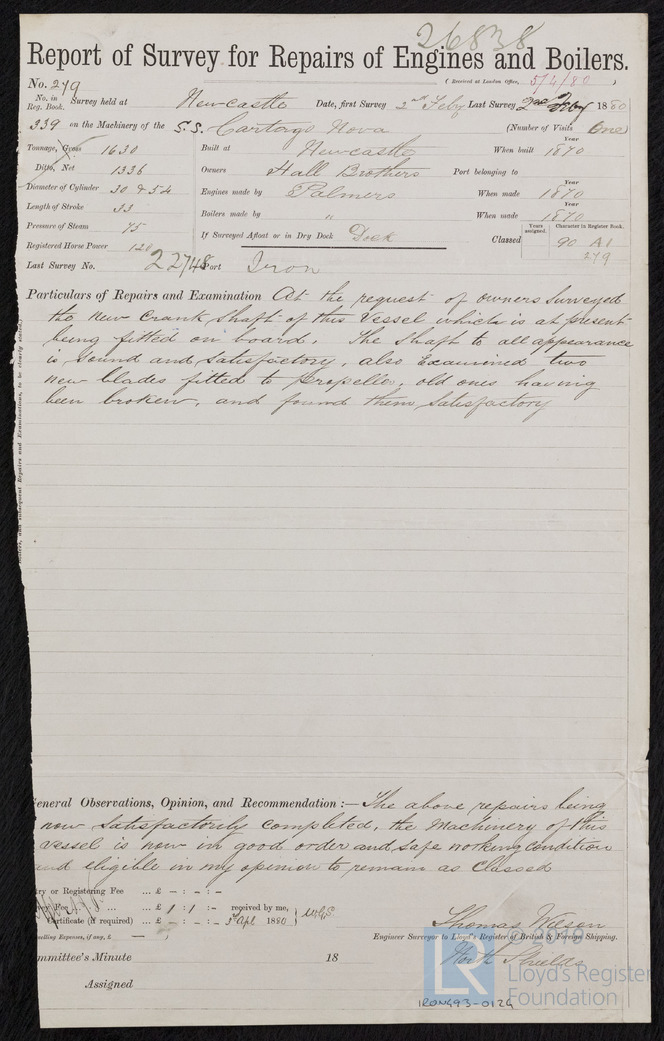 26838
Report of Survey for Repairs of Engines and Boilers.
No. 279 (Received at London Office, 5/4/80 )
No. in Reg. Book. Survey held at Newcastle Date, first Survey 2nd Feby Last Survey 2nd Feby 1880
339 on the Machinery of the S.S. Cartago Nova (Number of Visits One)
Tonnage, Gross 1630 Built at Newcastle When built Year 1870
Ditto, Net 1336 Owners Hall Brothers Port belonging to
Diameter of Cylinder 30 & 54 Engines made by Palmers When made Year 1870
Length of Stroke 33 Boilers made by " When made Year 1870
Pressure of Steam 75 If Surveyed Afloat or in Dry Dock Dock Classed Years assigned. 90 Character in Register Book. A1
Registered Horse Power 120 2/79
Last Survey No. 22748 Port Iron
Particulars of Repairs and Examination At the request of owners surveyed
the new Crank Shaft of this Vessel which is at present
being fitted on board. The Shaft to all appearance
is sound and satisfactory, also Examined two
new blades fitted to propeller, old ones having
been broken, and found them satisfactory
Boilers, and subsequent Repairs and Examinations, to be clearly stated.
General Observations, Opinion, and Recommendation :— The above repairs being
now satisfactorily completed, the Machinery of this
Vessel is now in good order and safe working condition
and eligible in my opinion to remain as Classed
ry or Registering Fee ... £ – : – : –
Fee ... £ 1 : 1 : – received by me,
Certificate (if required) ... £ – : – : – 3 Apl 1880
velling Expenses, if any, £ —
Thomas Wilson
Engineer Surveyor to Lloyd's Register of British & Foreign Shipping.
North Shields
ommittee's Minute 18
Assigned
LR
© 2019
Lloyd's Register
Foundation
IRON493-0129